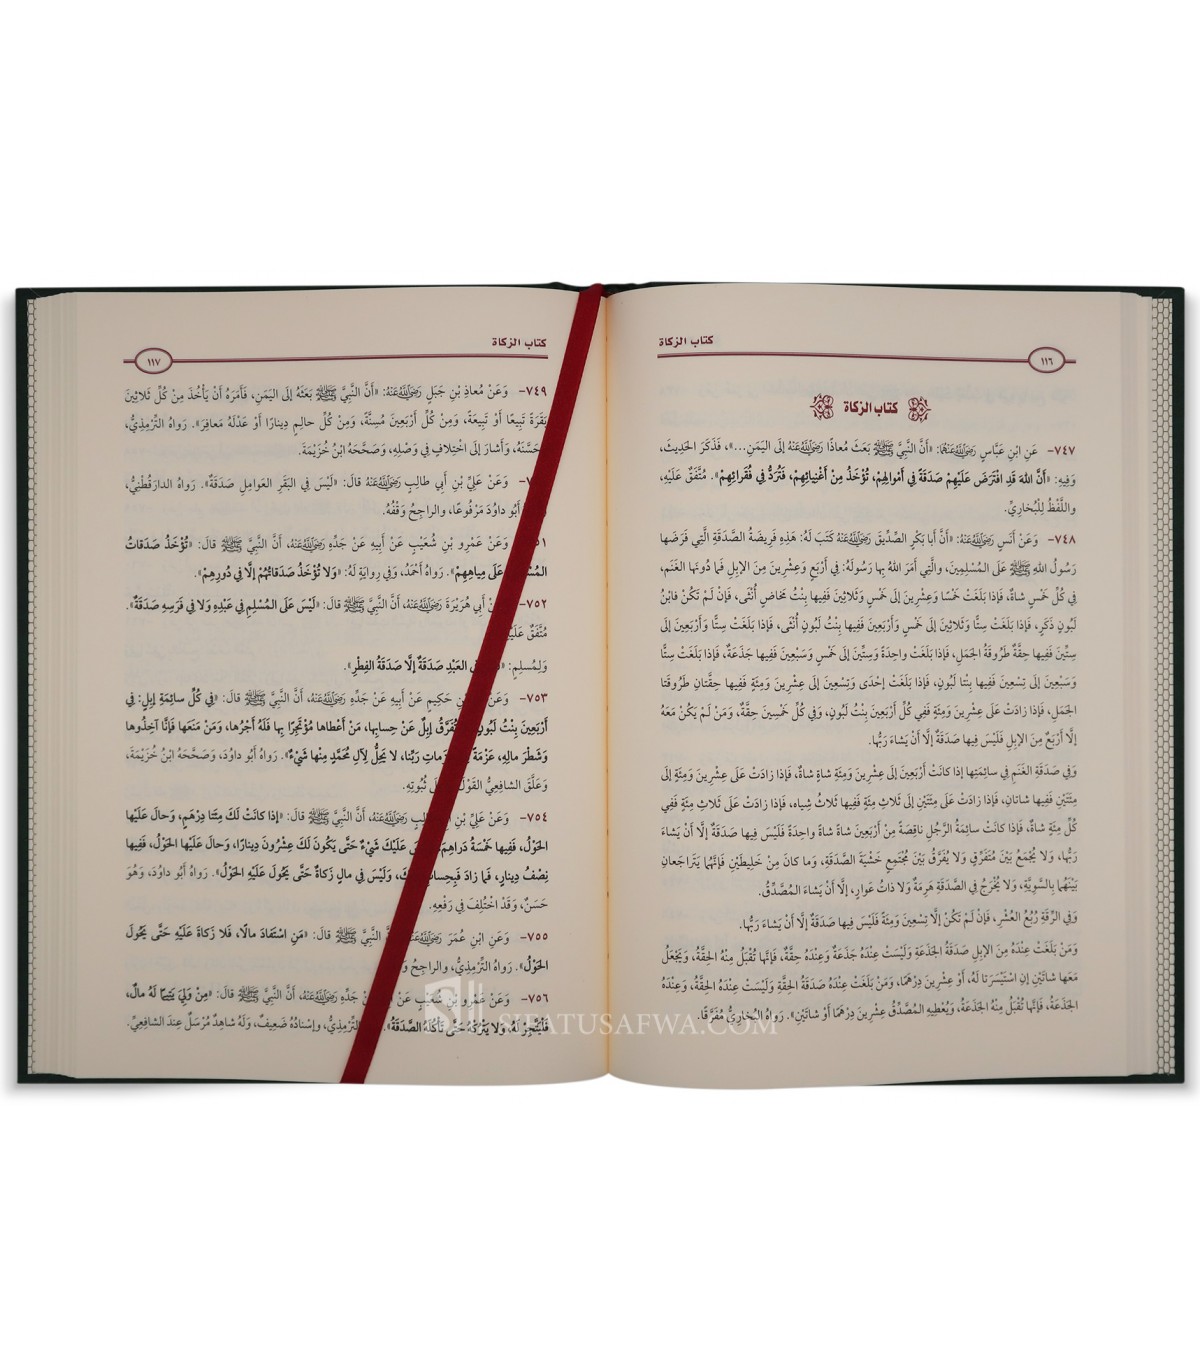 كتاب الزكاة
١١٦
كتاب الزكاة
٧٤٧- عَنِ ابْنِ عَبَّاسٍ رَضِيَ اللهُ عَنْهُمَا: «أَنَّ النَّبِيَّ ﷺ بَعَثَ مُعَاذًا رَضِيَ اللهُ عَنْهُ إِلَى اليَمَنِ...»، فَذَكَرَ الحَدِيثَ،
وَفِيهِ: «أَنَّ اللهَ قَدِ افْتَرَضَ عَلَيْهِمْ صَدَقَةً فِي أَمْوَالِهِمْ، تُؤْخَذُ مِنْ أَغْنِيائِهِمْ، فَتُرَدُّ فِي فُقَرائِهِمْ». مُتَّفَقٌ عَلَيْهِ،
واللَّفْظُ لِلْبُخَارِيِّ.
٧٤٨- وَعَنْ أَنَسٍ رَضِيَ اللهُ عَنْهُ: «أَنَّ أَبا بَكْرٍ الصِّدِّيقَ رَضِيَ اللهُ عَنْهُ كَتَبَ لَهُ: هَذِهِ فَرِيضَةُ الصَّدَقَةِ الَّتِي فَرَضَها
رَسُولُ اللهِ ﷺ عَلَى المُسْلِمِينَ، والَّتِي أَمَرَ اللهُ بِها رَسُولَهُ: فِي أَرْبَعٍ وَعِشْرِينَ مِنَ الإِبِلِ فَما دُونَها الغَنَمُ،
فِي كُلِّ خَمْسٍ شاةٌ، فَإِذا بَلَغَتْ خَمْسًا وَعِشْرِينَ إِلَى خَمْسٍ وَثَلاثِينَ فَفِيها بِنْتُ مَخاضٍ أُنْثَى، فَإِنْ لَمْ تَكُنْ فابْنُ
لَبُونٍ ذَكَرٍ، فَإِذا بَلَغَتْ سِتًّا وَثَلاثِينَ إِلَى خَمْسٍ وَأَرْبَعِينَ فَفِيها بِنْتُ لَبُونٍ أُنْثَى، فَإِذا بَلَغَتْ سِتًّا وَأَرْبَعِينَ إِلَى
سِتِّينَ فَفِيها حِقَّةٌ طَرُوقَةُ الجَمَلِ، فَإِذا بَلَغَتْ واحِدَةً وَسِتِّينَ إِلَى خَمْسٍ وَسَبْعِينَ فَفِيها جَذَعَةٌ، فَإِذا بَلَغَتْ سِتًّا
وَسَبْعِينَ إِلَى تِسْعِينَ فَفِيها بِنْتا لَبُونٍ، فَإِذا بَلَغَتْ إِحْدَى وَتِسْعِينَ إِلَى عِشْرِينَ وَمِئَةٍ فَفِيها حِقَّتانِ طَرُوقَتا
الجَمَلِ، فَإِذا زادَتْ عَلَى عِشْرِينَ وَمِئَةٍ فَفِي كُلِّ أَرْبَعِينَ بِنْتُ لَبُونٍ، وَفِي كُلِّ خَمْسِينَ حِقَّةٌ، وَمَنْ لَمْ يَكُنْ مَعَهُ
إِلَّا أَرْبَعٌ مِنَ الإِبِلِ فَلَيْسَ فِيها صَدَقَةٌ إِلَّا أَنْ يَشاءَ رَبُّها.
وَفِي صَدَقَةِ الغَنَمِ فِي سائِمَتِها إِذا كانَتْ أَرْبَعِينَ إِلَى عِشْرِينَ وَمِئَةِ شاةٍ شاةٌ، فَإِذا زادَتْ عَلَى عِشْرِينَ وَمِئَةٍ إِلَى
مِئَتَيْنِ فَفِيها شاتانِ، فَإِذا زادَتْ عَلَى مِئَتَيْنِ إِلَى ثَلاثِ مِئَةٍ فَفِيها ثَلاثُ شِياهٍ، فَإِذا زادَتْ عَلَى ثَلاثِ مِئَةٍ فَفِي
كُلِّ مِئَةٍ شاةٌ، فَإِذا كانَتْ سائِمَةُ الرَّجُلِ ناقِصَةً مِنْ أَرْبَعِينَ شاةً شاةً واحِدَةً فَلَيْسَ فِيها صَدَقَةٌ إِلَّا أَنْ يَشاءَ
رَبُّها، وَلا يُجْمَعُ بَيْنَ مُتَفَرِّقٍ وَلا يُفَرَّقُ بَيْنَ مُجْتَمِعٍ خَشْيَةَ الصَّدَقَةِ، وَما كانَ مِنْ خَلِيطَيْنِ فَإِنَّهُما يَتَراجَعانِ
بَيْنَهُما بِالسَّوِيَّةِ، وَلا يُخْرَجُ فِي الصَّدَقَةِ هَرِمَةٌ وَلا ذاتُ عَوارٍ، إِلَّا أَنْ يَشاءَ المُصَّدِّقُ.
وَفِي الرِّقَةِ رُبُعُ العُشْرِ، فَإِنْ لَمْ تَكُنْ إِلَّا تِسْعِينَ وَمِئَةً فَلَيْسَ فِيها صَدَقَةٌ إِلَّا أَنْ يَشاءَ رَبُّها.
وَمَنْ بَلَغَتْ عِنْدَهُ مِنَ الإِبِلِ صَدَقَةُ الجَذَعَةِ وَلَيْسَتْ عِنْدَهُ جَذَعَةٌ وَعِنْدَهُ حِقَّةٌ، فَإِنَّها تُقْبَلُ مِنْهُ الحِقَّةُ، وَيَجْعَلُ
مَعَها شاتَيْنِ إِنِ اسْتَيْسَرَتا لَهُ، أَوْ عِشْرِينَ دِرْهَمًا، وَمَنْ بَلَغَتْ عِنْدَهُ صَدَقَةُ الحِقَّةِ وَلَيْسَتْ عِنْدَهُ الحِقَّةُ، وَعِنْدَهُ
الجَذَعَةُ، فَإِنَّها تُقْبَلُ مِنْهُ الجَذَعَةُ، وَيُعْطِيهِ المُصَدِّقُ عِشْرِينَ دِرْهَمًا أَوْ شاتَيْنِ». رَواهُ البُخارِيُّ مُفَرَّقًا.
كتاب الزكاة
١١٧
٧٤٩- وَعَنْ مُعاذِ بْنِ جَبَلٍ رَضِيَ اللهُ عَنْهُ: «أَنَّ النَّبِيَّ ﷺ بَعَثَهُ إِلَى اليَمَنِ، فَأَمَرَهُ أَنْ يَأْخُذَ مِنْ كُلِّ ثَلاثِينَ
بَقَرَةً تَبِيعًا أَوْ تَبِيعَةً، وَمِنْ كُلِّ أَرْبَعِينَ مُسِنَّةً، وَمِنْ كُلِّ حالِمٍ دِينارًا أَوْ عَدْلَهُ مَعافِرَ». رَواهُ التِّرْمِذِيُّ،
وَحَسَّنَهُ، وَأَشارَ إِلَى اخْتِلافٍ فِي وَصْلِهِ، وَصَحَّحَهُ ابْنُ خُزَيْمَةَ.
وَعَنْ عَلِيِّ بْنِ أَبِي طالِبٍ رَضِيَ اللهُ عَنْهُ قالَ: «لَيْسَ فِي البَقَرِ العَوامِلِ صَدَقَةٌ». رَواهُ الدارَقُطْنِيُّ،
أَبُو داوُدَ مَرْفُوعًا، والراجِحُ وَقْفُهُ.
وَعَنْ عَمْرِو بْنِ شُعَيْبٍ عَنْ أَبِيهِ عَنْ جَدِّهِ رَضِيَ اللهُ عَنْهُ، أَنَّ النَّبِيَّ ﷺ قالَ: «تُؤْخَذُ صَدَقاتُ
عَلَى مِياهِهِمْ». رَواهُ أَحْمَدُ، وَفِي رِوايَةٍ لَهُ: «وَلا تُؤْخَذُ صَدَقاتُهُمْ إِلَّا فِي دُورِهِمْ».
٧٥٢- أَبِي هُرَيْرَةَ رَضِيَ اللهُ عَنْهُ، أَنَّ النَّبِيَّ ﷺ قالَ: «لَيْسَ عَلَى المُسْلِمِ فِي عَبْدِهِ وَلا فِي فَرَسِهِ صَدَقَةٌ».
مُتَّفَقٌ
وَلِمُسْلِمٍ: العَبْدِ صَدَقَةٌ إِلَّا صَدَقَةُ الفِطْرِ».
٧٥٣- وَعَنْ بْنِ حَكِيمٍ عَنْ أَبِيهِ عَنْ جَدِّهِ رَضِيَ اللهُ عَنْهُ، أَنَّ النَّبِيَّ ﷺ قالَ: «فِي كُلِّ سائِمَةِ إِبِلٍ: فِي
أَرْبَعِينَ بِنْتُ لَبُونٍ تُفَرَّقُ إِبِلٌ عَنْ حِسابِها، مَنْ أَعْطاها مُؤْتَجِرًا بِها فَلَهُ أَجْرُها، وَمَنْ مَنَعَها فَإِنَّا آخِذُوها
وَشَطْرَ مالِهِ، عَزْمَةً رَبِّنا، لا يَحِلُّ لِآلِ مُحَمَّدٍ مِنْها شَيْءٌ». رَواهُ أَبُو داوُدَ، وَصَحَّحَهُ ابْنُ خُزَيْمَةَ،
وَعَلَّقَ الشافِعِيُّ القَوْلَ ثُبُوتِهِ.
٧٥٤- وَعَنْ عَلِيِّ بْنِ رَضِيَ اللهُ عَنْهُ، أَنَّ النَّبِيَّ ﷺ قالَ: «إِذا كانَتْ لَكَ مِئَتا دِرْهَمٍ، وَحالَ عَلَيْها
الحَوْلُ، فَفِيها خَمْسَةُ دَراهِمَ عَلَيْكَ شَيْءٌ حَتَّى يَكُونَ لَكَ عِشْرُونَ دِينارًا، وَحالَ عَلَيْها الحَوْلُ، فَفِيها
نِصْفُ دِينارٍ، فَما زادَ فَبِحِسابِ وَلَيْسَ فِي مالٍ زَكاةٌ حَتَّى يَحُولَ عَلَيْهِ الحَوْلُ». رَواهُ أَبُو داوُدَ، وَهُوَ
حَسَنٌ، وَقَدْ اخْتُلِفَ فِي رَفْعِهِ.
٧٥٥- وَعَنِ ابْنِ عُمَرَ النَّبِيَّ ﷺ قالَ: «مَنِ اسْتَفادَ مالًا، فَلا زَكاةَ عَلَيْهِ حَتَّى يَحُولَ
الحَوْلُ». رَواهُ التِّرْمِذِيُّ، والراجِحُ
٧٥٦- وَعَنْ عَمْرِو بْنِ شُعَيْبٍ عَنْ جَدِّهِ رَضِيَ اللهُ عَنْهُ، أَنَّ النَّبِيَّ ﷺ قالَ: «مَنْ وَلِيَ يَتِيمًا لَهُ مالٌ،
فَلْيَتَّجِرْ لَهُ، وَلا يَتْرُكْهُ حَتَّى تَأْكُلَهُ الصَّدَقَةُ». التِّرْمِذِيُّ، وإِسْنادُهُ ضَعِيفٌ، وَلَهُ شاهِدٌ مُرْسَلٌ عِنْدَ الشافِعِيِّ.
SIFATUSAFWA.COM